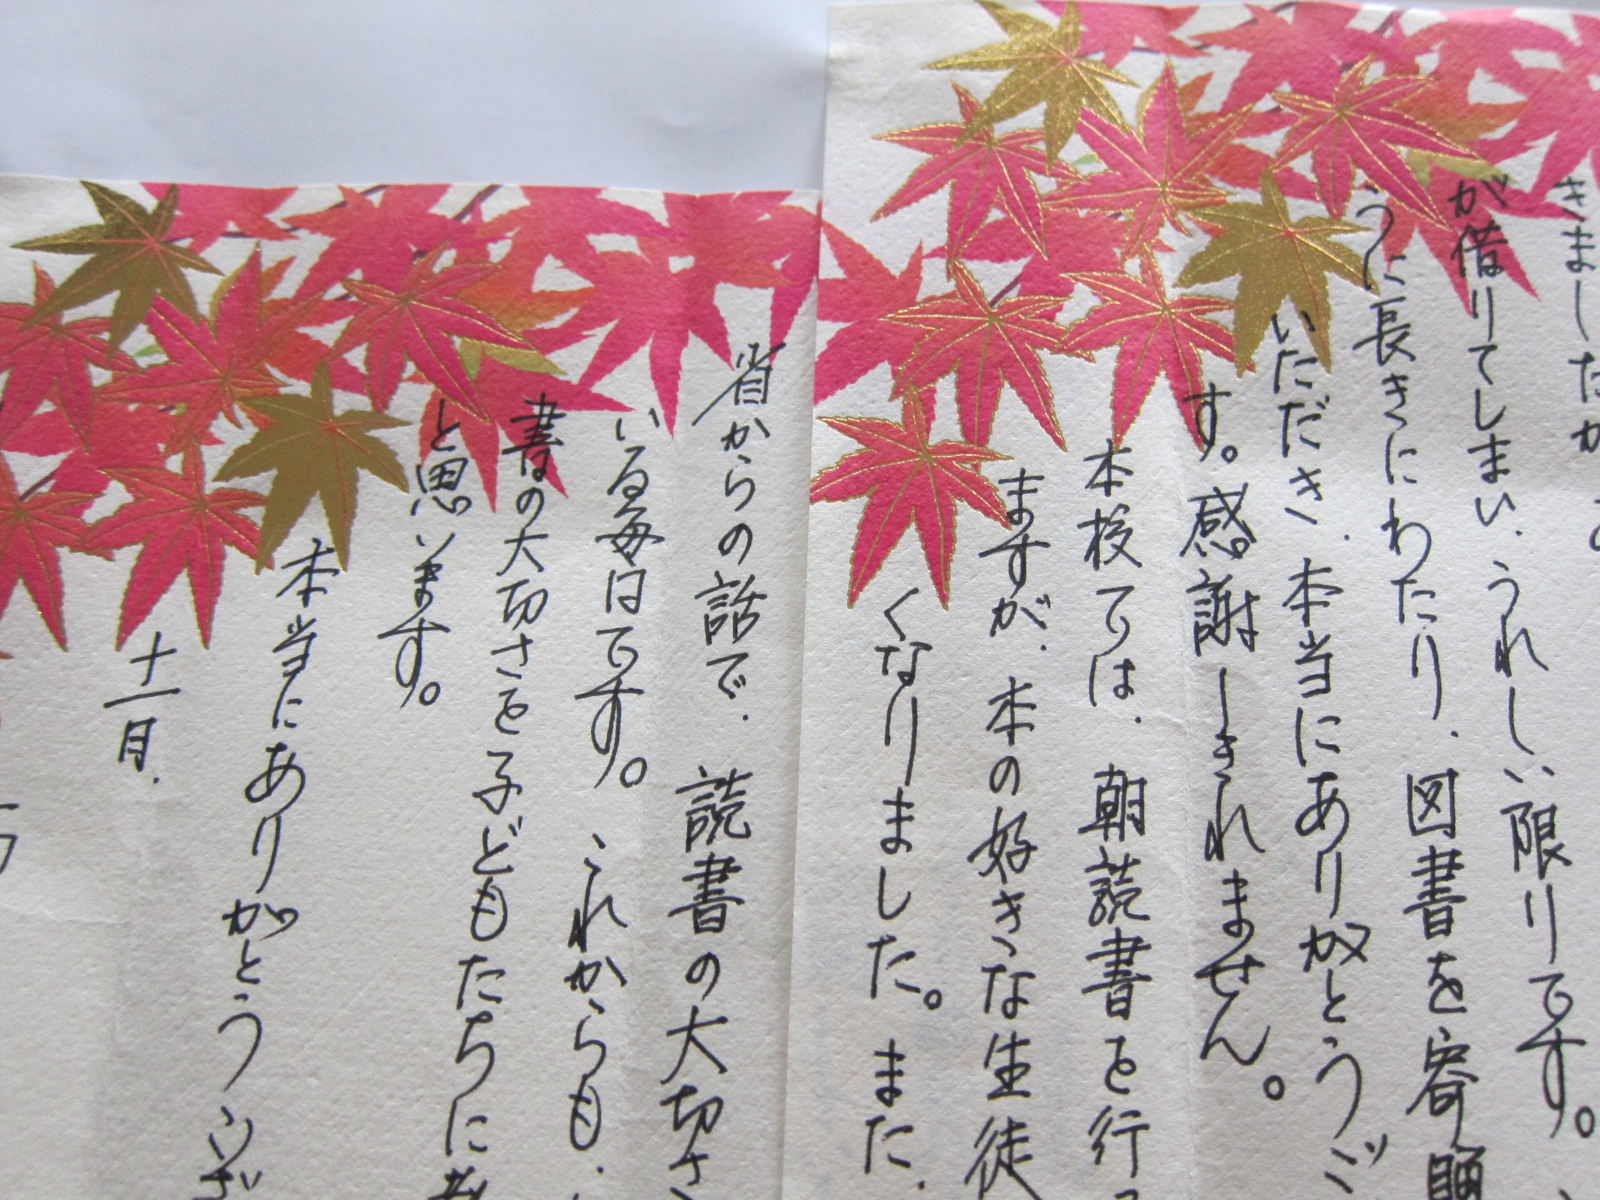 きましたが
が借りてしまい、うれしい限りです。
うに長きにわたり、図書を寄贈
いただき、本当にありがとうご
す。感謝しきれません。
本校では、朝読書を行っ
ますが、本の好きな生徒
くなりました。また、
省からの話で、読書の大切さ
いる毎日です。これからも、
書の大切さを子どもたちに
と思います。
本当にありがとうござ
十一月